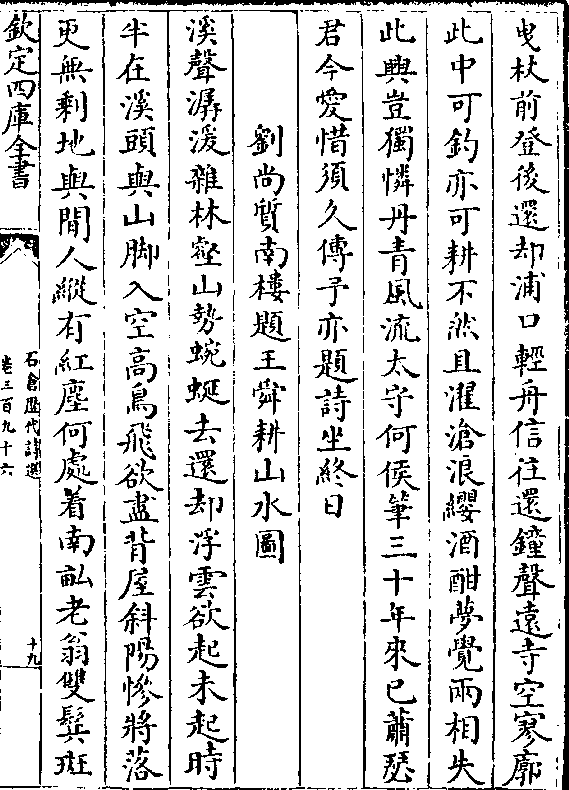 曵杖前登後還却浦口輕舟信往還鐘聲遠寺空寥廓
此中可釣亦可耕不然且濯滄浪纓酒酣夢覺兩相失
此興豈獨憐丹青風流太守何侯筆三十年來已蕭瑟
君今愛惜須久傳予亦題詩坐終日
劉尚質南樓題王舜耕山水圖
溪聲潺湲雜林壑山勢蜿蜒去還却浮雲欲起未起時
半在溪頭與山脚入空高鳥飛欲盡背屋斜陽慘將落
更無剩地與閒人縱有紅塵何處着南畆老翁雙鬂斑
欽定四庫全書
石倉歴代詩選
卷三百九十六
十九